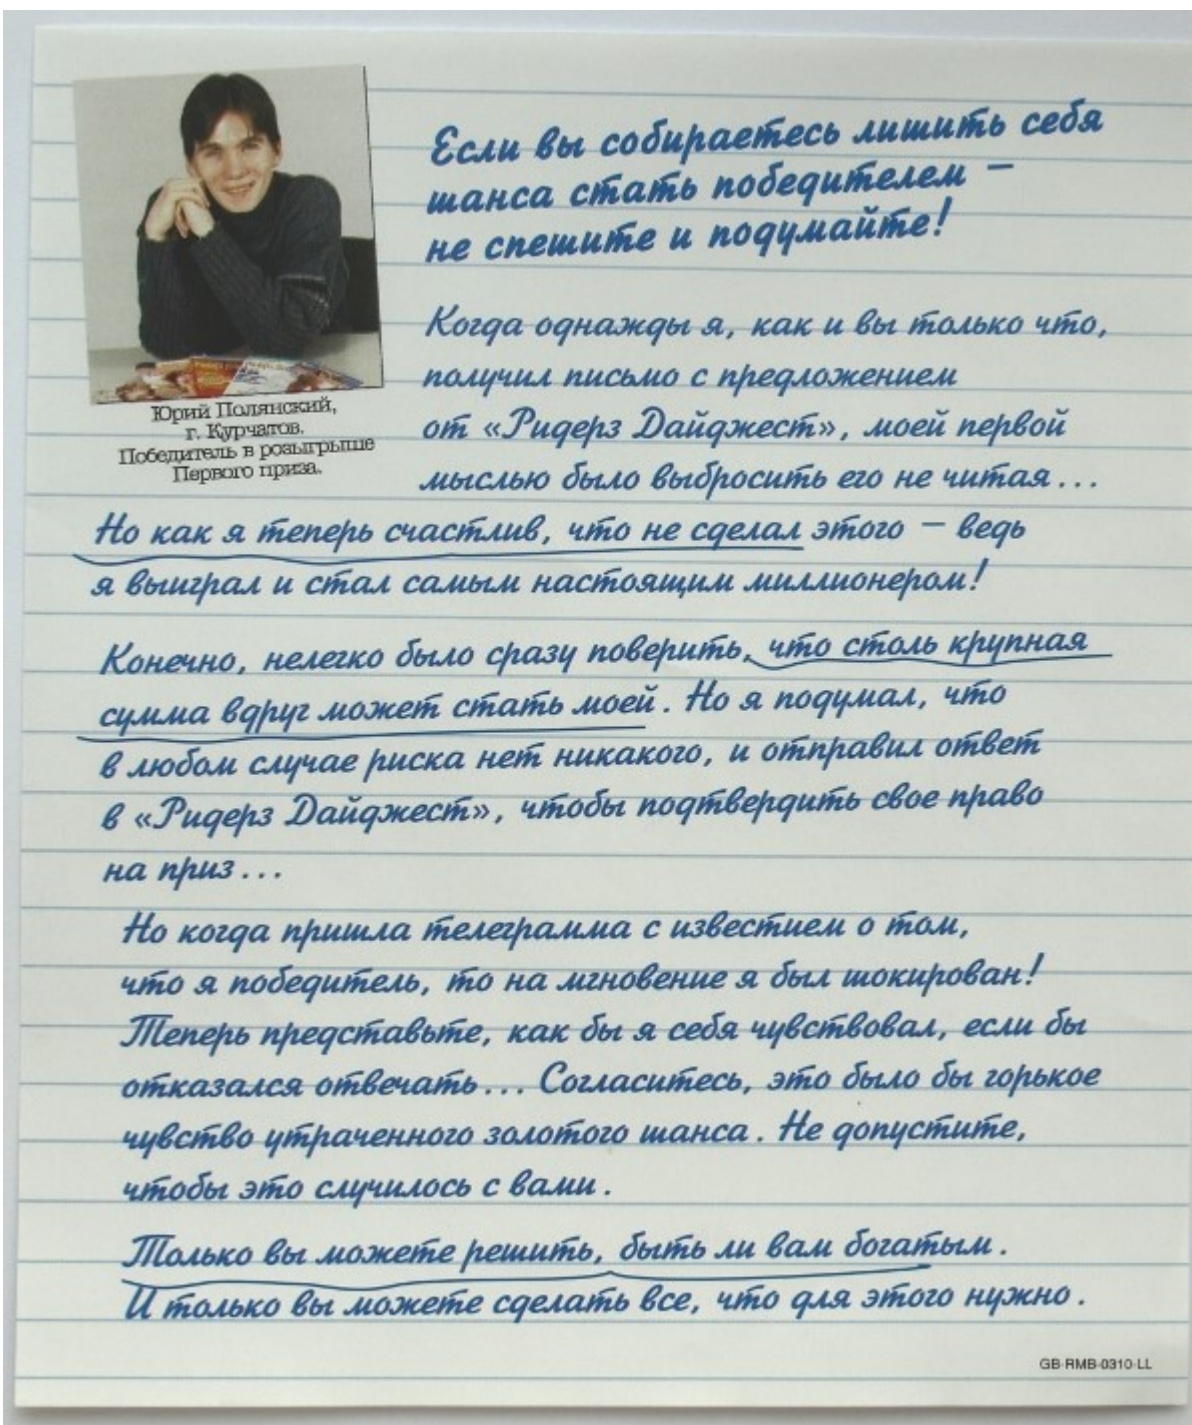 Если вы собираетесь лишить себя
шанса стать победителем –
не спешите и подумайте!
Юрий Полянский,
г. Курчатов.
Победитель в розыгрыше
Первого приза.
Когда однажды я, как и вы только что,
получил письмо с предложением
от «Ридерз Дайджест», моей первой
мыслью было выбросить его не читая...
Но как я теперь счастлив, что не сделал этого – ведь
я выиграл и стал самым настоящим миллионером!
Конечно, нелегко было сразу поверить, что столь крупная
сумма вдруг может стать моей. Но я подумал, что
в любом случае риска нет никакого, и отправил ответ
в «Ридерз Дайджест», чтобы подтвердить свое право
на приз...
Но когда пришла телеграмма с известием о том,
что я победитель, то на мгновение я был шокирован!
Теперь представьте, как бы я себя чувствовал, если бы
отказался отвечать... Согласитесь, это было бы горькое
чувство утраченного золотого шанса. Не допустите,
чтобы это случилось с вами.
Только вы можете решить, быть ли вам богатым.
И только вы можете сделать все, что для этого нужно.
GB-RMB-0310-LL